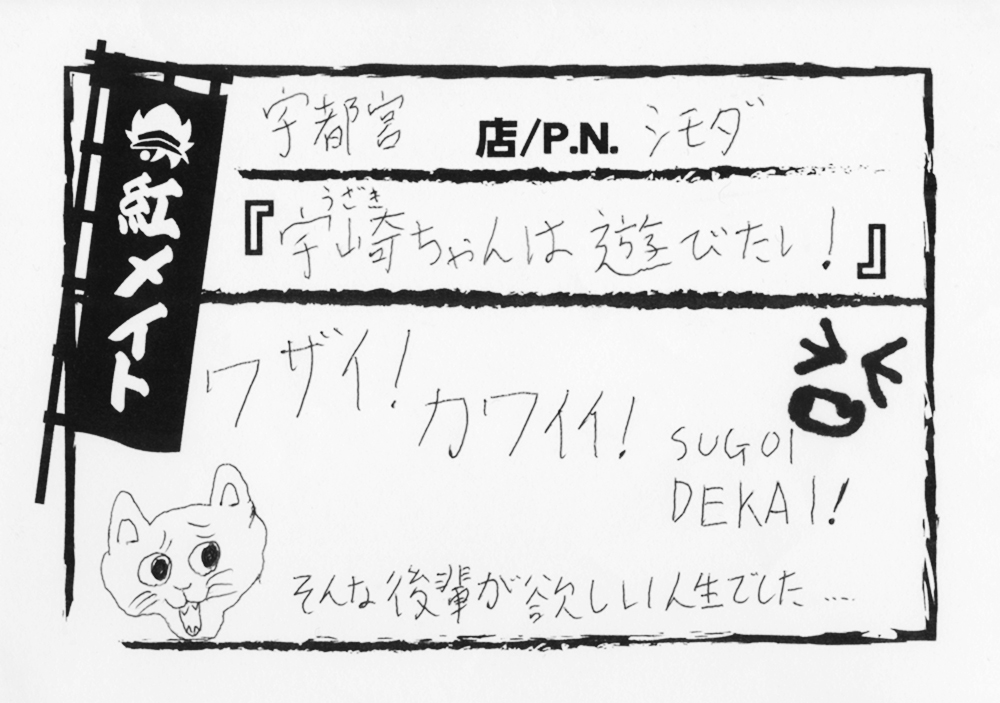 紅メイト
宇都宮 店/P.N. シモダ
うざき
『宇崎ちゃんは遊びたい!』
ウザイ!
カワイイ!
SUGOI
DEKAI!
そんな後輩が欲しい人生でした……